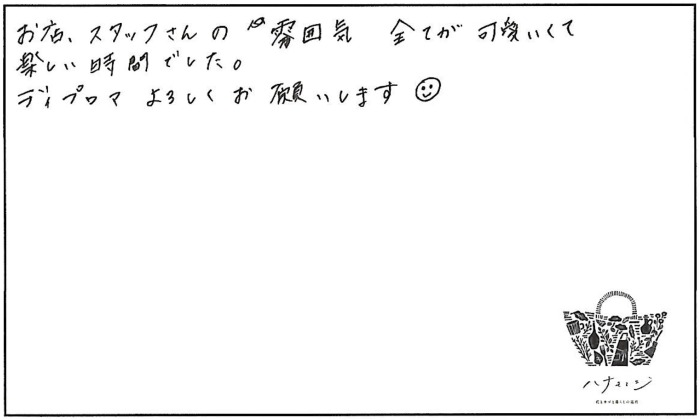 お店、スタッフさんの雰囲気 全てが可愛いくて
楽しい時間でした。
ディプロマ よろしくお願いします